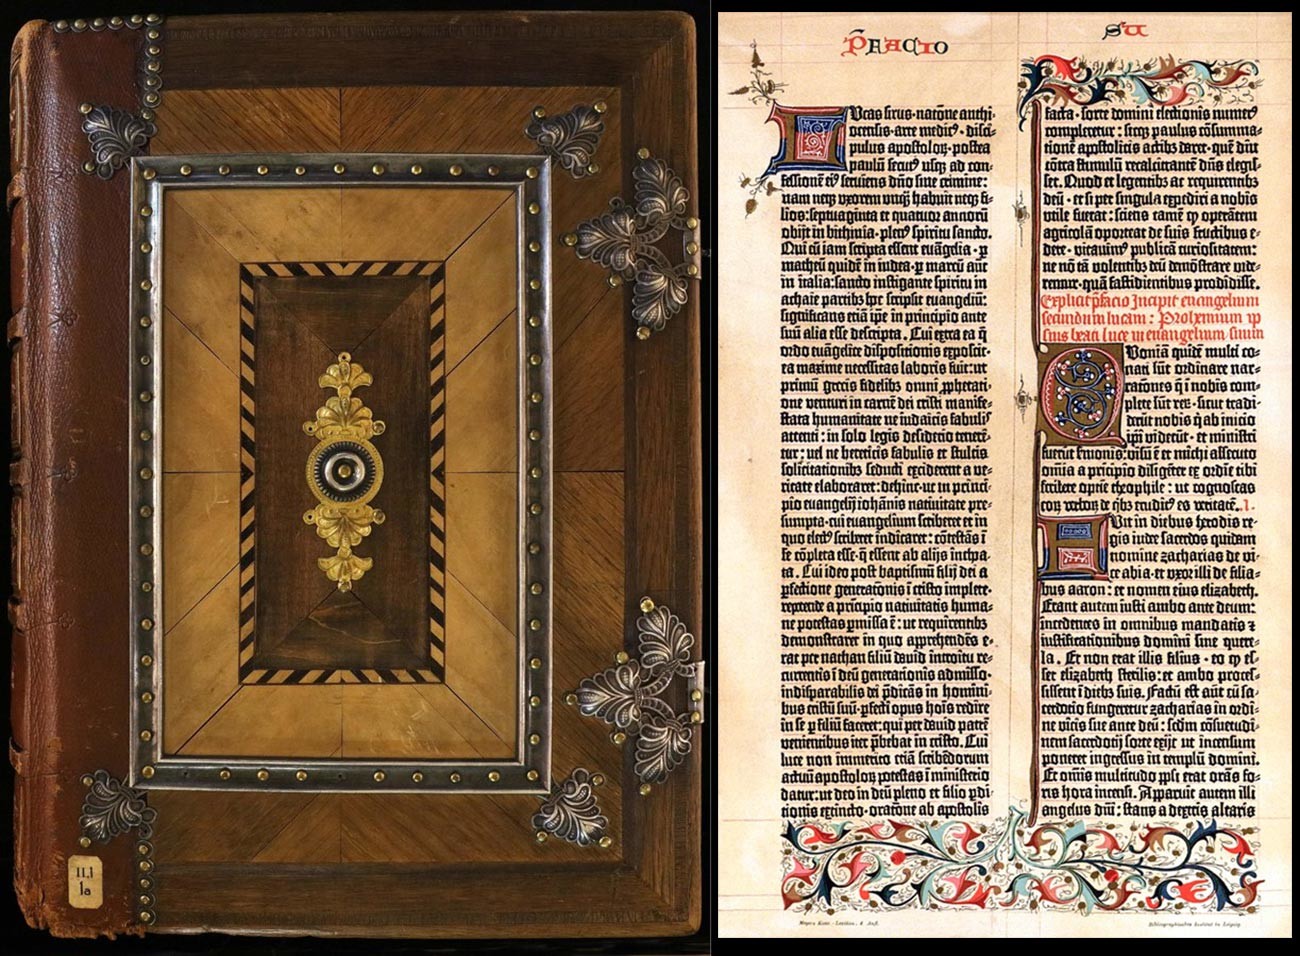 II,1
1a
P̄FACIO
SU
Lucas sirus·natōne anthi-
ocensis·arte medicꝰ·disci-
pulus apostoloꝝ·postea
paulū secutꝰ usqꝫ ad con-
fessionē eiꝰ serviens dño sine crimine:
nam neqꝫ uxorem unqꝫ habuit neqꝫ fi-
lios: septuaginta et quatuor annorū
obijt in bithinia·plenꝰ spiritu sancto.
Qui cū iam scripta essent euāgelia·ꝑ
matheū quidē in iudea·ꝑ marcū aūt
in italia: sancto instigante spiritu in
achaie partibꝫ hoc scripsit euangeliū:
significans etiā ipē in principio ante
suū alia esse descripta. Cui extra ea q̄
ordo euāgelice dispositionis exposcit·
ea maxime necessitas laboris fuit: ut
primū grecis fidelibꝫ omni ꝓphetati-
one venturi in carnē dei cristi manife-
stata humanitate ne iudaicis fabulis
attenti: in solo legis desiderio tenerē-
tur: vel ne hereticis fabulis et stultis
solicitationibꝫ seducti exciderent a ve-
ritate elaboraret: dehinc·ut in princi-
pio euangelij iohānis nativitate pre-
sumpta·cui euangelium scriberet et in
quo electꝰ scriberet indicaret: cōtestās ī
se cōpleta esse·q̄ essent ab alijs inchoa-
ta. Cui ideo post baptismū filij dei a
ꝑfectione generatōnis ī cristo implete·
repetende a prīcipio nativitatis huma-
ne potestas ꝑmissa ē: ut requirentibꝫ
demonstraret in quo apprehendēs e-
rat per nathan filiū david introitu re-
currentis ī deū generationis admisso·
indisparabilis dei p̄dicās in homini-
bus cristū suū·ꝑfecti opus hoīs redire
in se ꝑ filiū faceret: qui per david patrē
venientibus iter p̄bebat in cristo. Cui
luce non immerito etiā scribēdorum
actuū apostoloꝝ potestas ī ministerio
datur: ut deo in deū pleno et filio ꝓdi-
tionis extincto·oratōne ab apostolis
facta·sorte domini electionis numerꝰ
compleretur: sicqꝫ paulus cōsumma-
tionē apostolicis actibꝫ daret·quē diu
cōtra stimulū recalcitrantē dn̄s elegis-
set. Quod et legentibꝫ ac requirentibꝫ
deū·etsi per singula expediri a nobis
utile fuerat: sciens tamē qꝫ operātem
agricolā oporteat de suis fructibus e-
dere·vitavimꝰ publicā curiositatem:
ne nō tā volentibꝫ deū demōstrare vide-
remur·quā fastidientibus prodidisse.
Explicit p̄facio Incipit euangelium
secundum lucam: Prohemium ip-
sius beati luce in euangelium suum
Quoniā quidē multi co-
nati sūt ordinare nar-
ratōnes q̄ ī nobis com-
plete sūt reꝝ·sicut tradi-
derūt nobis q̇ ab inicio
ipī viderūt·et ministri
fuerūt sermonis: visū ē et michi assecuto
omīa a principio diligēter ex ordīe tibi
scribere optīe theophile: ut cognoscas
eoꝝ verboꝝ de q̇bꝫ eruditꝰ es veritatē. I.
Fuit in diebus herodis re-
gis iudee sacerdos quidam
nomine zacharias de vi-
ce abia·et uxor illi de filia-
bus aaron: et nomen eius elizabeth.
Erant autem iusti ambo ante deum:
incedentes in omnibus mandatis et
iustificationibus domini sine quere-
la. Et non erat illis filius·eo qꝫ es-
set elizabeth sterilis: et ambo proces-
sissent ī diebꝫ suis. Factū est aūt cū sa-
cerdotio fungeretur zacharias in ordi-
ne vicis sue ante deū: scdm cōsuetudi-
nem sacerdotij sorte exijt ut incensum
poneret ingressus in templū domini.
Et omīs multitudo ppli erat orās fo-
ris hora incensi. Apparuit autem illi
angelus dn̄i: stans a dextris altaris
Meyers Konv.-Lexikon, 4. Aufl.
Bibliographisches Institut in Leipzig.